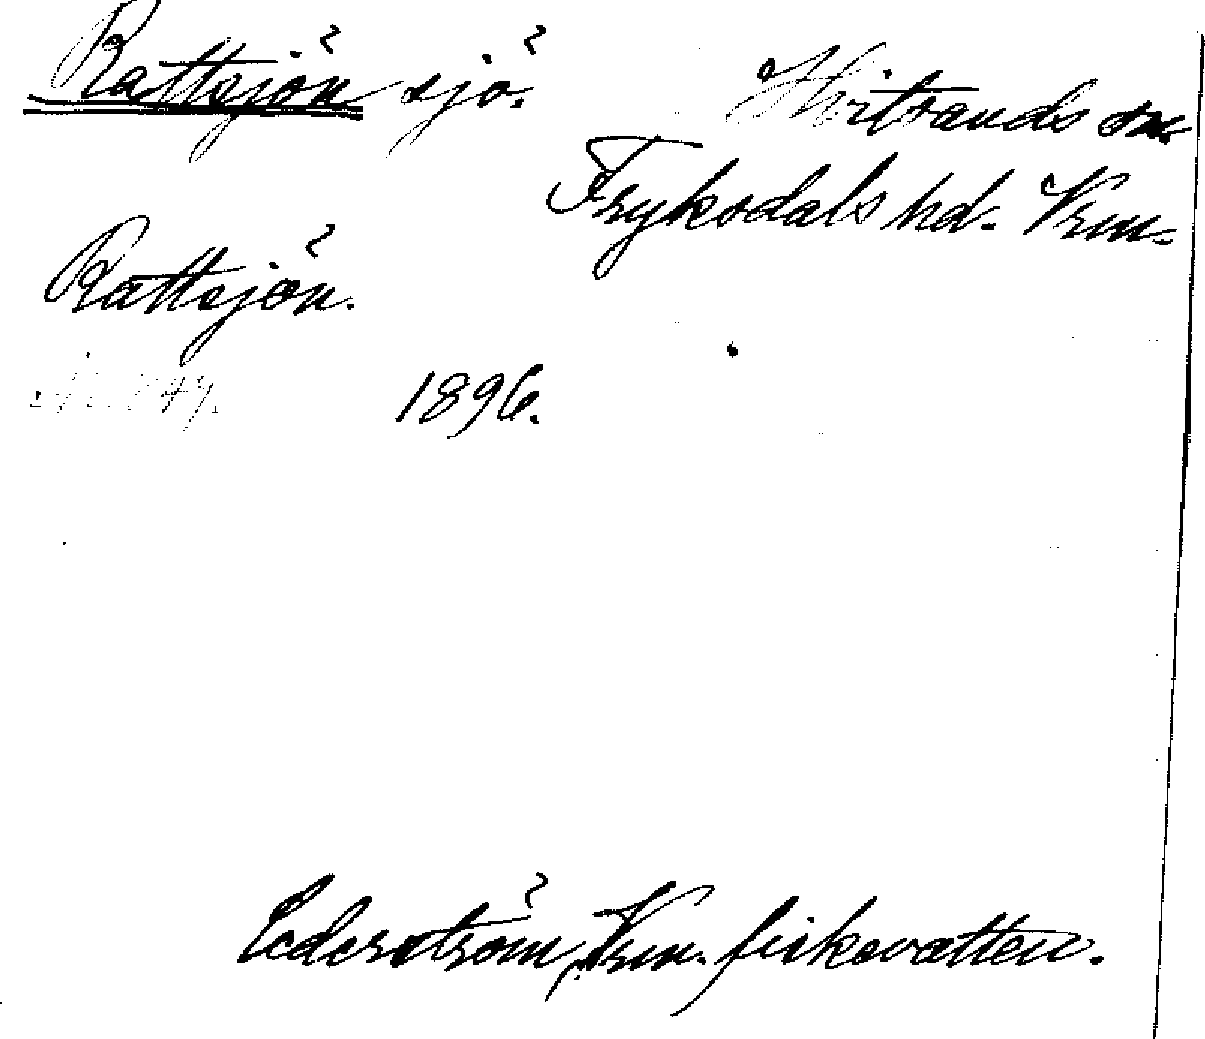 Rattsjön sjö.
Hvitsands sn.
Fryksdals hd. Vrm.
Rattsjön.
1896.
Cederström, Vrm. fiskevatten.